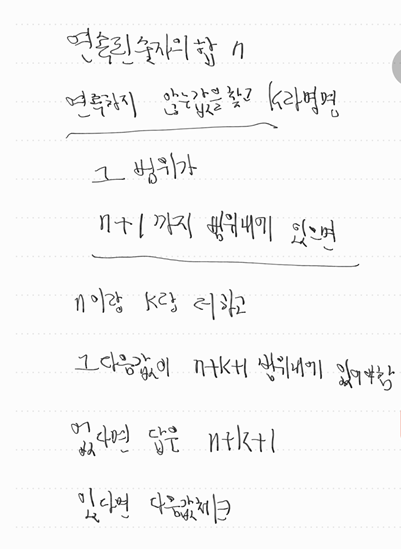 연속된 숫자의 합 n
연륙하지 않는값을 찾고 K라명명
그 범위가
n+1 까지 범위내에 있으면
n이랑 K랑 더하고
그다음값이 n+k+1 범위내에 있어야함
없다면 답은 n+k+1
있다면 다음값체크